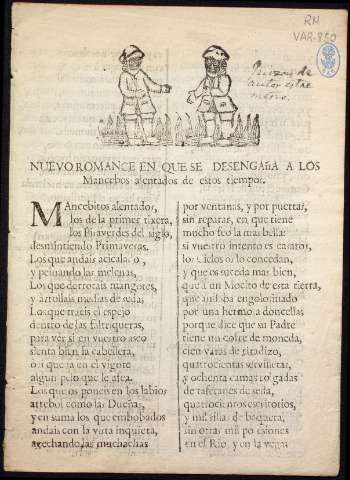 RN
VAR-850
de
autor
NUEVO ROMANCE EN QUE SE DESENGAñA A LOS
Mancebos alentados de estos tiempos.
MAncebitos alentados,
los de la primer tixera,
los Piraverdes del siglo,
desmintiendo Primaveras.
Los que andais acicalados,
y peinando las melenas,
Los que derrotais mangotes,
y arrollais medias de seda;
Los que traeis el espejo
dentro de las faltriqueras,
para ver si en vuestro aseo
sienta bien la cabellera,
o si que ja en el vigote
algun pelo que le afea.
Los que os poneis en los labios
arrebol como las Dueñas,
y en suma los que embobados
andais con la vista inquieta,
azechando las muchachas
por ventanas, y por puertas,
sin reparar, en que tiene
mucho feo la mas bella:
si vuestro intento es casaros,
los Cielos os lo concedan,
y que os suceda mas bien,
que a un Mocito de esta tierra,
que andaba engolosinado
por una hermosa doncella;
porque dice que su Padre
tiene un cofre de moneda,
cien varas de
quatrocientas servilletas,
y ochenta camas colgadas
de tafetanes de seda,
quatrocientos escritorios,
y mil sillas de baqueta,
sin otras mil posesiones
en el Rio, y en la vega;